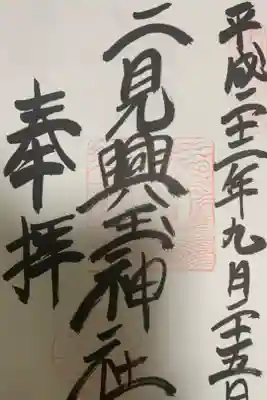 平成二十三年九月二十五日
二見興玉神社
奉拝